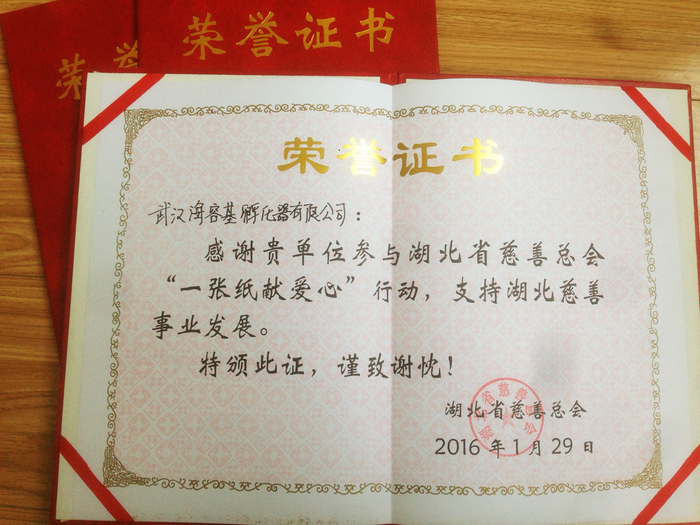 荣誉证书
荣誉
荣誉证书
武汉海容基孵化器有限公司：
感谢贵单位参与湖北省慈善总会
“一张纸献爱心”行动，支持湖北慈善
事业发展。
特颁此证，谨致谢忱！
湖北省慈善总会
2016年1月29日
湖北省慈善总会